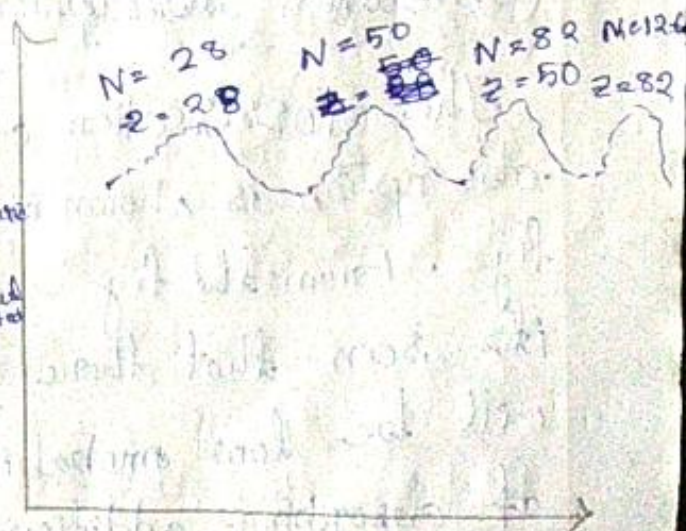 N = 28
Z = 28
N = 50
Z =
N = 82
Z = 50
N = 126
Z = 82